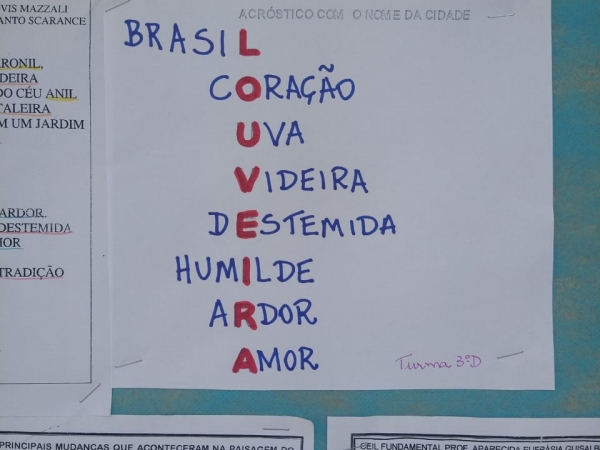 VIS MAZZALI
ANTO SCARANCE
RONIL,
DEIRA
DO CÉU ANIL
TALEIRA
M UM JARDIM
ARDOR.
DESTEMIDA
IOR
TRADIÇÃO
ACRÓSTICO COM O NOME DA CIDADE
BRASIL
CORAÇÃO
UVA
VIDEIRA
DESTEMIDA
HUMILDE
ARDOR
AMOR
Turma 3ºD
PRINCIPAIS MUDANÇAS QUE ACONTECERAM NA PAISAGEM DO
CEIL FUNDAMENTAL PROF. APARECIDA EUFRÁSIA